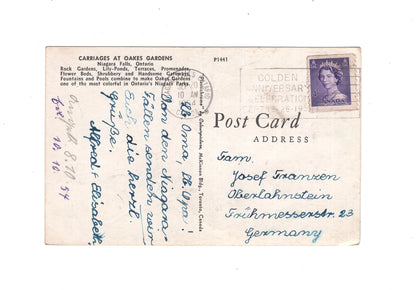 CARRIAGES AT OAKES GARDENS
Niagara Falls, Ontario
Rock Gardens, Lily-Ponds, Terraces, Promenades,
Flower Beds, Shrubbery and Handsome Gateways,
Fountains and Pools combine to make Oakes Gardens
one of the most colorful in Ontario's Niagara Parks.
P1441
AM
GOLDEN
ANNIVERSARY
CELEBRATION
CANADA
Post Card
ADDRESS
Lb. Oma, lb. Opa!
Von den Niagara-
Fällen senden wir
Euch die herzl.
Grüße.
Alfred + Elisabeth
8.10
10.10.54
McKinnon Bldg., Toronto, Canada
Fam.
Josef Franzen
Oberlahnstein
Frühmesserstr. 23
Germany